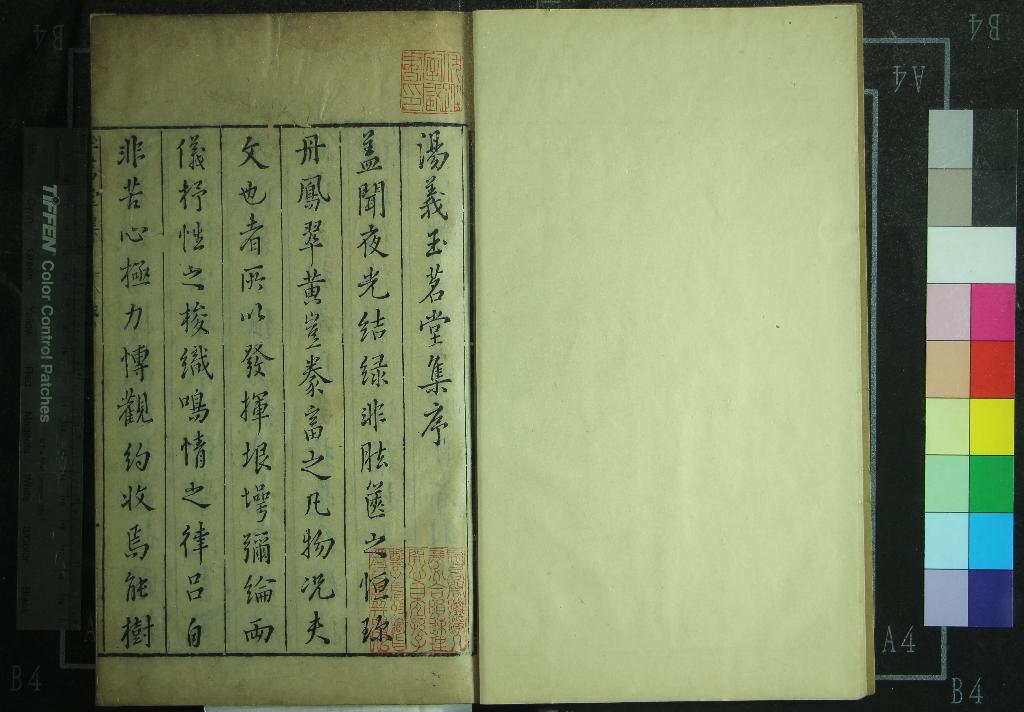 湯義玉茗堂集序
盖聞夜光結緑非胠篋之恒珍
丹鳳翠黄豈豢畜之凡物况夫
文也者所以發揮垠堮彌綸兩
儀抒性之梭織鳴情之律呂自
非苦心極力博觀約收焉能樹
TIFFEN Color Control Patches
B4
A4
A4
B4
B4
B4